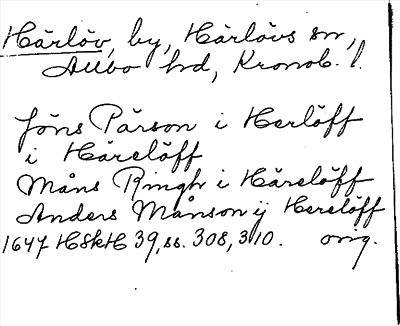 Härlöv, by, Härlövs sn,
Allbo hd, Kronob. l.
Jöns Pärson i Herlöff
i Härelöff
Måns Ringh i Härelöff
Anders Månson ij Herelöff
1647 HSkH 39, ss. 308, 310. orig.